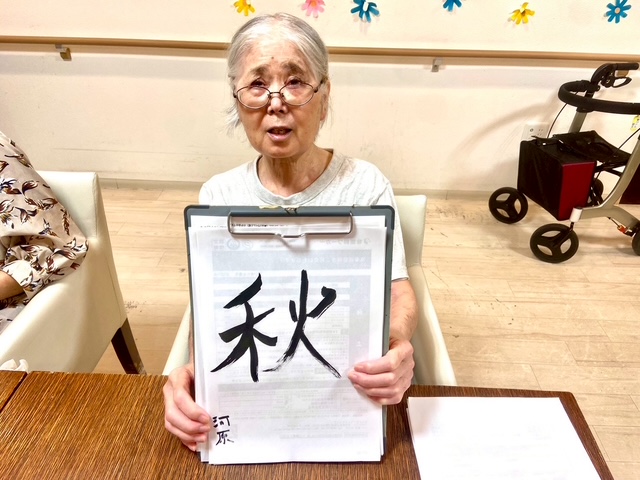 秋
河原